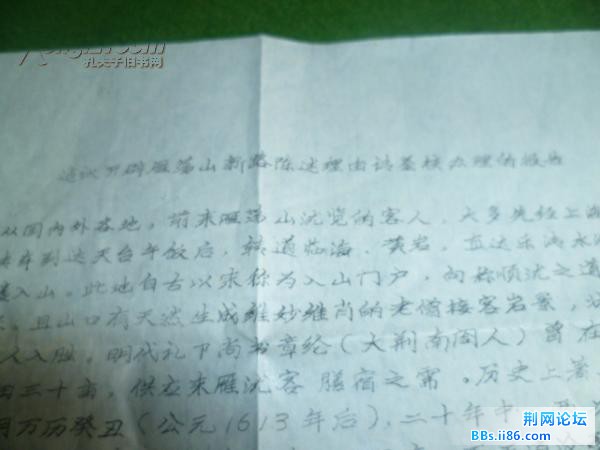 孔夫子旧书网
建议开辟雁荡山新路陈述理由请鉴核办理的报告
从国内外各地,前来雁荡山游览的客人,大多先经上
车到达天台午饭后,转道临海、黄岩,直达乐清水
入山。此地自古以来称为入山门户,向称顺游之道
且山口有天然生成维妙维肖的老僧接客岩景,
人入胜。明代礼部尚书章纶(大荆南阁人)曾在
田三十亩,供应来雁游客膳宿之需。历史上著
明万历癸丑(公元1613年后),二十年中
荆网论坛
BBs.ii86.com